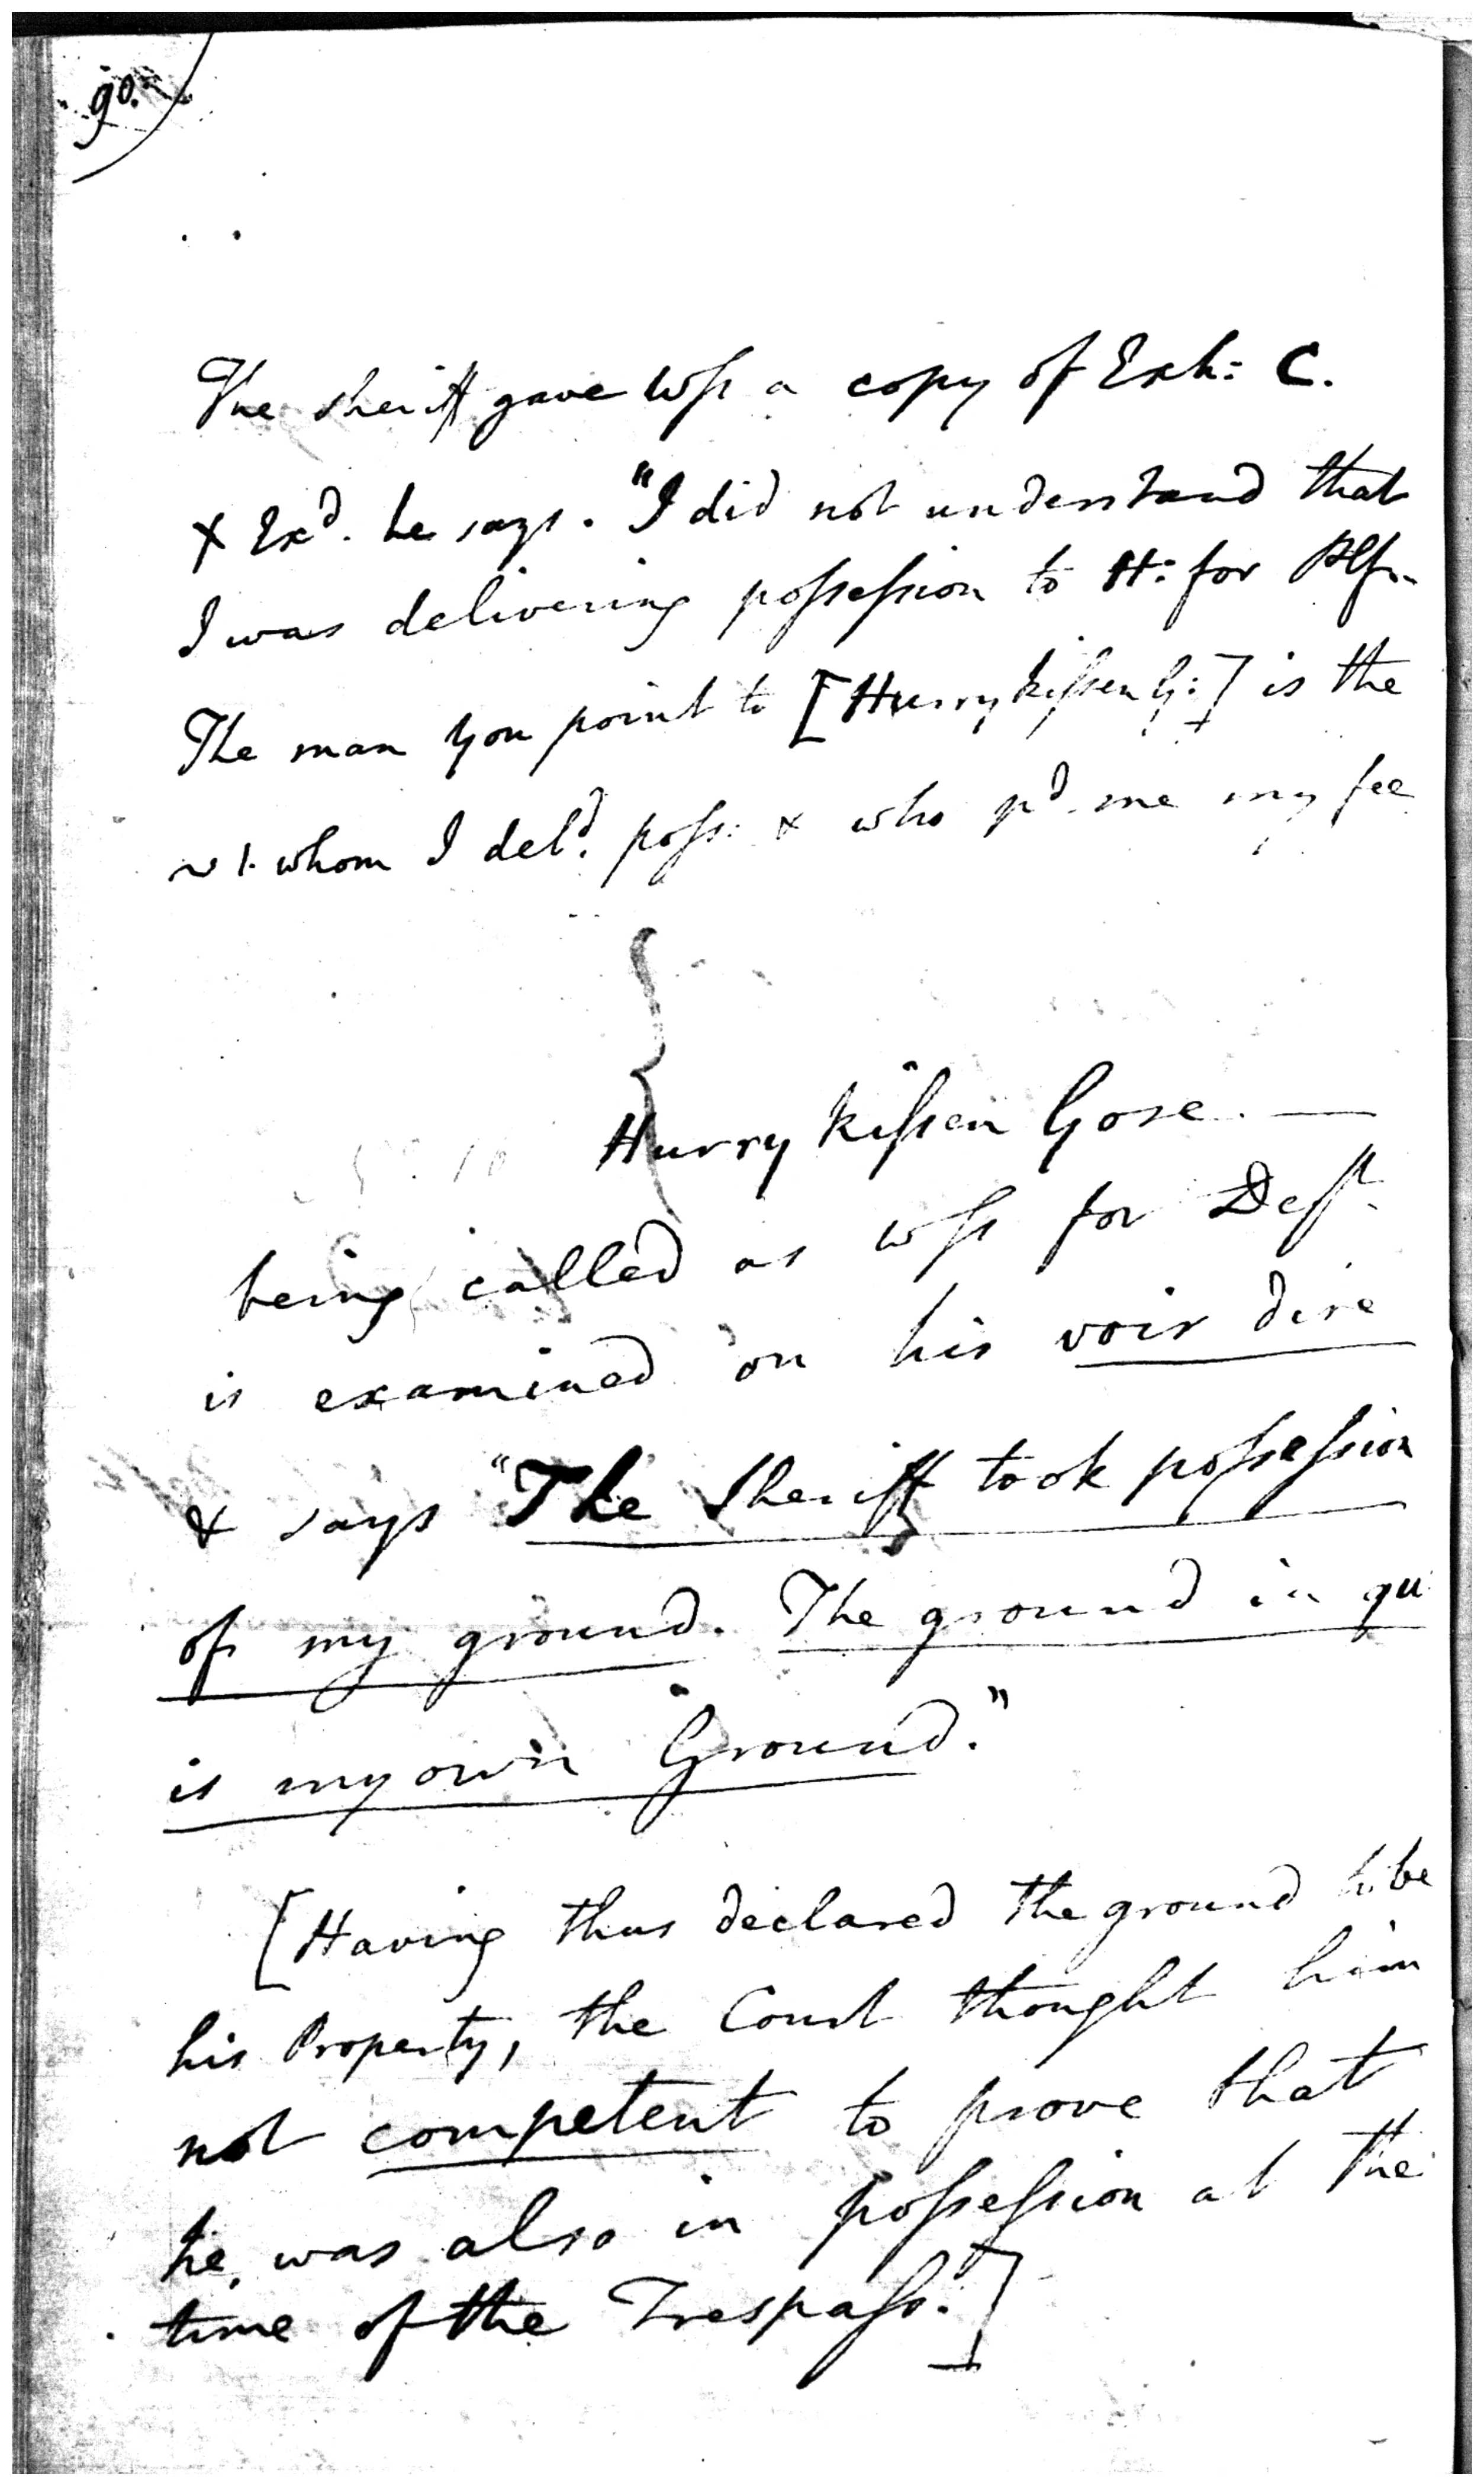 90.
The Sheriff gave Wss a copy of Exh: C.
X Exd. he says. "I did not understand that
I was delivering possession to H: for Plf.
The man you point to [Hurrykissen G:] is the
whom I deld. poss: & who pd. me my fee
Hurry Kissen Gose. —
being called as wss for Deft.
is examined on his voir dire
& says "The Sheriff took possession
of my ground. The ground in qu
is my own Ground."
[Having thus declared the ground to be
his Property, the Court thought him
not competent to prove that
he was also in possession at the
time of the Trespass.]